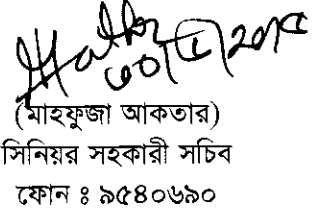 ৩০/৮/২০১৫
(মাহফুজা আকতার)
সিনিয়র সহকারী সচিব
ফোন ঃ ৯৫৪০৬৯০